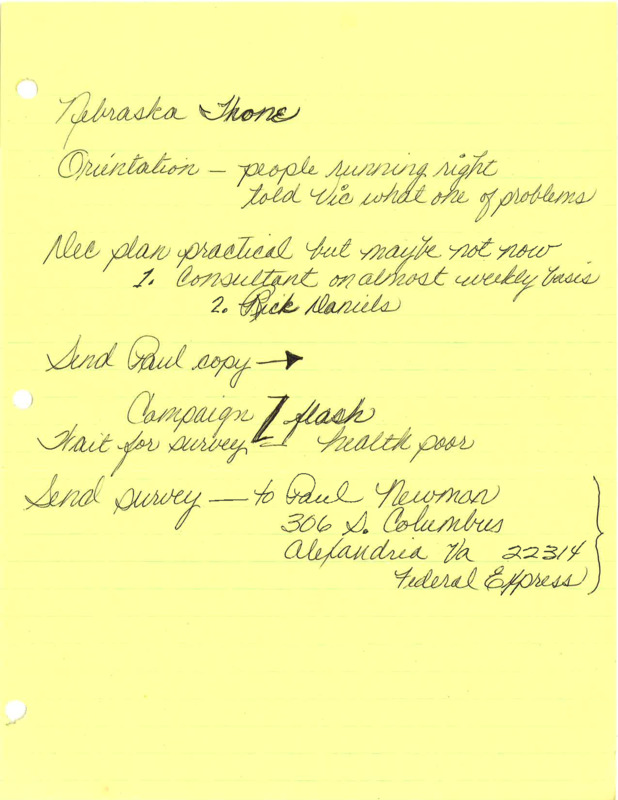 Nebraska Thone
Orientation — people running right
told Vic what one of problems
Dec plan practical but maybe not now
1. Consultant on almost weekly basis
2. Rick Daniels
Send Paul copy →
Campaign flash
Wait for survey — health poor
Send survey — to Paul Newman
306 S. Columbus
Alexandria Va 22314
Federal Express